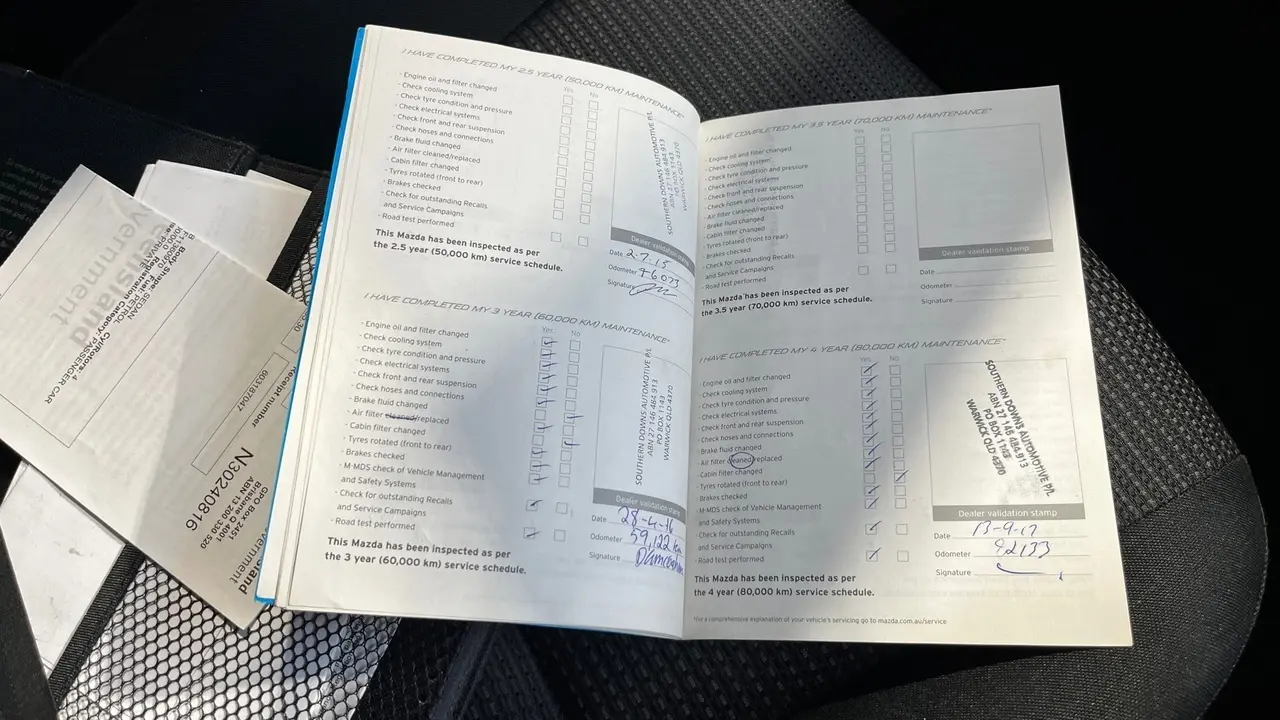 I HAVE COMPLETED MY 2.5 YEAR (50,000 KM) MAINTENANCE*
Yes No
- Engine oil and filter changed
- Check cooling system
- Check tyre condition and pressure
- Check electrical systems
- Check front and rear suspension
- Check hoses and connections
- Brake fluid changed
- Air filter cleaned/replaced
- Cabin filter changed
- Tyres rotated (front to rear)
- Brakes checked
- Check for outstanding Recalls
and Service Campaigns
- Road test performed
This Mazda has been inspected as per
the 2.5 year (50,000 km) service schedule.
SOUTHERN DOWNS AUTOMOTIVE P/L
ABN 27 146 484 913
PO BOX 1143
WARWICK QLD 4370
Dealer validation stamp
Date 2-7-15
Odometer 46073
Signature
I HAVE COMPLETED MY 3 YEAR (60,000 KM) MAINTENANCE*
Yes No
- Engine oil and filter changed
- Check cooling system
- Check tyre condition and pressure
- Check electrical systems
- Check front and rear suspension
- Check hoses and connections
- Brake fluid changed
- Air filter cleaned/replaced
- Cabin filter changed
- Tyres rotated (front to rear)
- Brakes checked
- M-MDS check of Vehicle Management
and Safety Systems
- Check for outstanding Recalls
and Service Campaigns
- Road test performed
This Mazda has been inspected as per
the 3 year (60,000 km) service schedule.
SOUTHERN DOWNS AUTOMOTIVE P/L
ABN 27 146 484 913
PO BOX 1143
WARWICK QLD 4370
Dealer validation stamp
Date 28-4-16
Odometer 59,122 km
Signature
I HAVE COMPLETED MY 3.5 YEAR (70,000 KM) MAINTENANCE*
Yes No
- Engine oil and filter changed
- Check cooling system
- Check tyre condition and pressure
- Check electrical systems
- Check front and rear suspension
- Check hoses and connections
- Air filter cleaned/replaced
- Brake fluid changed
- Cabin filter changed
- Tyres rotated (front to rear)
- Brakes checked
- Check for outstanding Recalls
and Service Campaigns
- Road test performed
This Mazda has been inspected as per
the 3.5 year (70,000 km) service schedule.
Dealer validation stamp
Date
Odometer
Signature
I HAVE COMPLETED MY 4 YEAR (80,000 KM) MAINTENANCE*
Yes No
- Engine oil and filter changed
- Check cooling system
- Check tyre condition and pressure
- Check electrical systems
- Check front and rear suspension
- Check hoses and connections
- Brake fluid changed
- Air filter cleaned/replaced
- Cabin filter changed
- Tyres rotated (front to rear)
- Brakes checked
- M-MDS check of Vehicle Management
and Safety Systems
- Check for outstanding Recalls
and Service Campaigns
- Road test performed
This Mazda has been inspected as per
the 4 year (80,000 km) service schedule.
SOUTHERN DOWNS AUTOMOTIVE P/L
ABN 27 146 484 913
PO BOX 1143
WARWICK QLD 4370
Dealer validation stamp
Date 13-9-17
Odometer 92133
Signature
*For a comprehensive explanation of your vehicle's servicing go to mazda.com.au/service
Body Shape: SEDAN
Fuel: PETROL
Cyl/Rotors: 4
Registration Category: PASSENGER CAR
Receipt number
603187047
N30240816
GPO Box 2451
Brisbane Q 4001
ABN 13 200 330 520